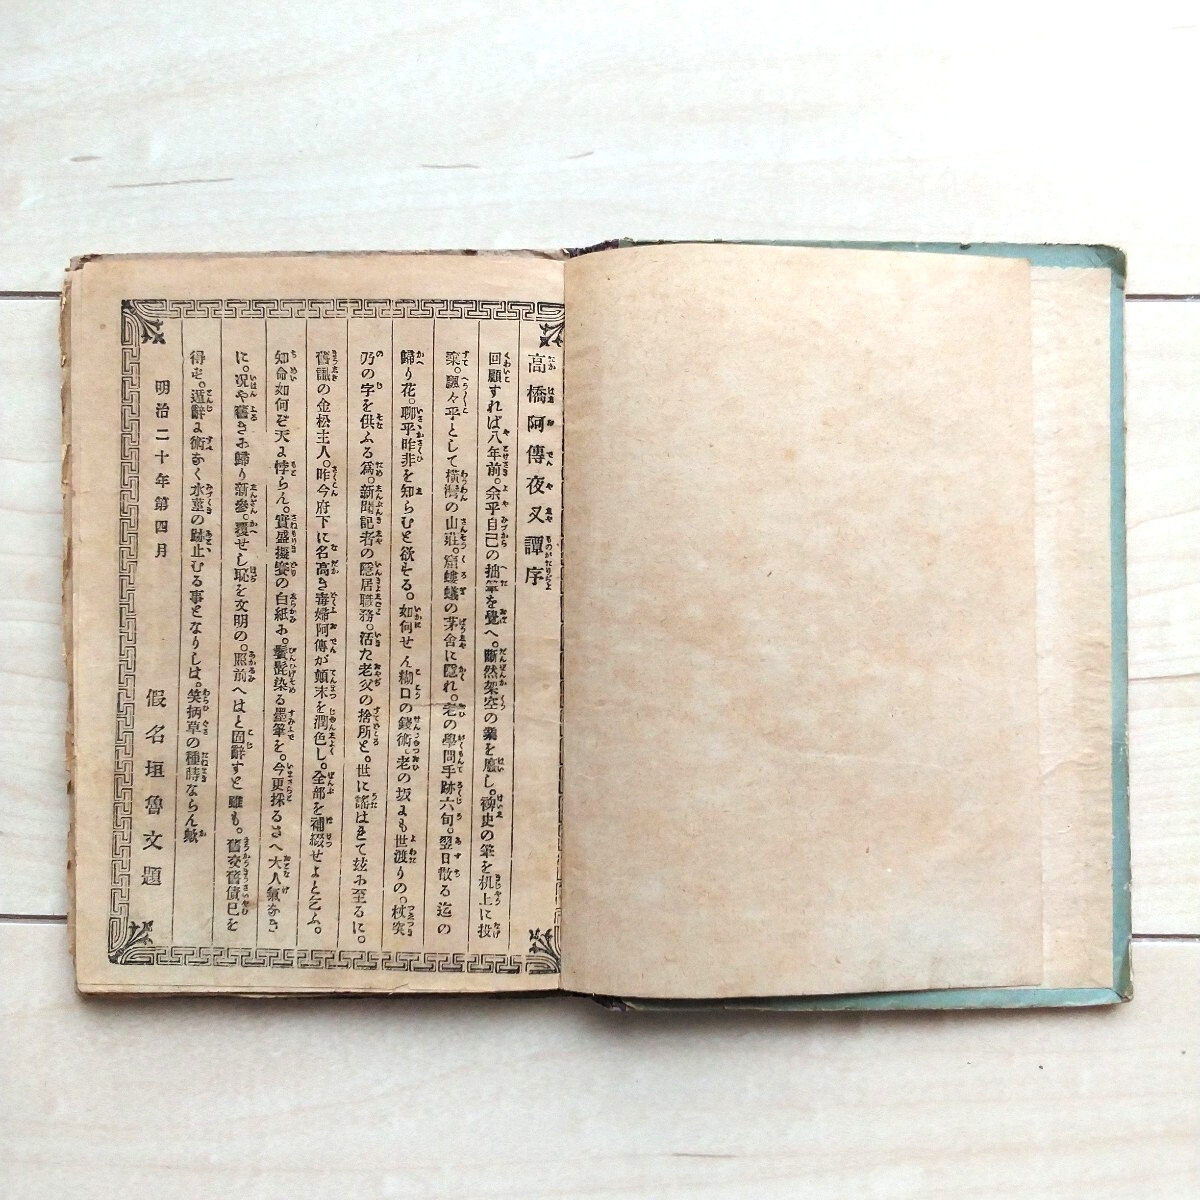 高橋阿傳夜叉譚序
回顧すれば八年前。余乎自己の拙筆を覺へ。斷然架空の業を廢し。稗史の筆を机上に投
棄。飄々乎として橫濱の山莊。窟螻蟻の茅舍に隱れ。老の學問手跡六旬。翌日散る迄の
歸り花。聊乎昨非を知らむと欲する。如何せん糊口の錢術。老の坂よも世渡りの。杖突
乃の字を供ふる爲。新聞記者の隱居職務。活た老父の捨所と。世に謠はきて玆に至るに。
舊識の金松主人。昨今府下に名高き毒婦阿傳が顛末を潤色し。全部を補綴せよと乞ふ。
知命如何ぞ天に悖らん。實盛擬娑の白紙に。鬢髭染る墨筆を。今更採るさへ大人氣なき
に。况や舊きに歸り新參。覆せし恥を文明の。照前へはと固辭すと雖も。舊交舊債巳を
得ず。遁辭に術なく水莖の跡止むる事となりしは。笑柄草の種時ならん歟
明治二十年第四月
假名垣魯文題